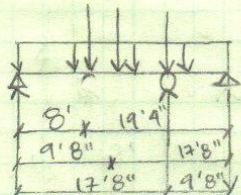 8' 19'4"
9'8" 17'8"
17'8" 9'8"